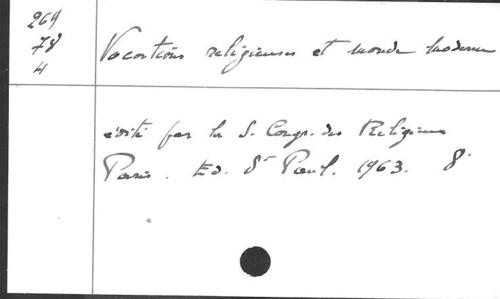 269
78
4
Vocations religieuses et monde moderne
édité par la S. Congr. des Religieux
Paris. Ed. St Paul. 1963. 8°